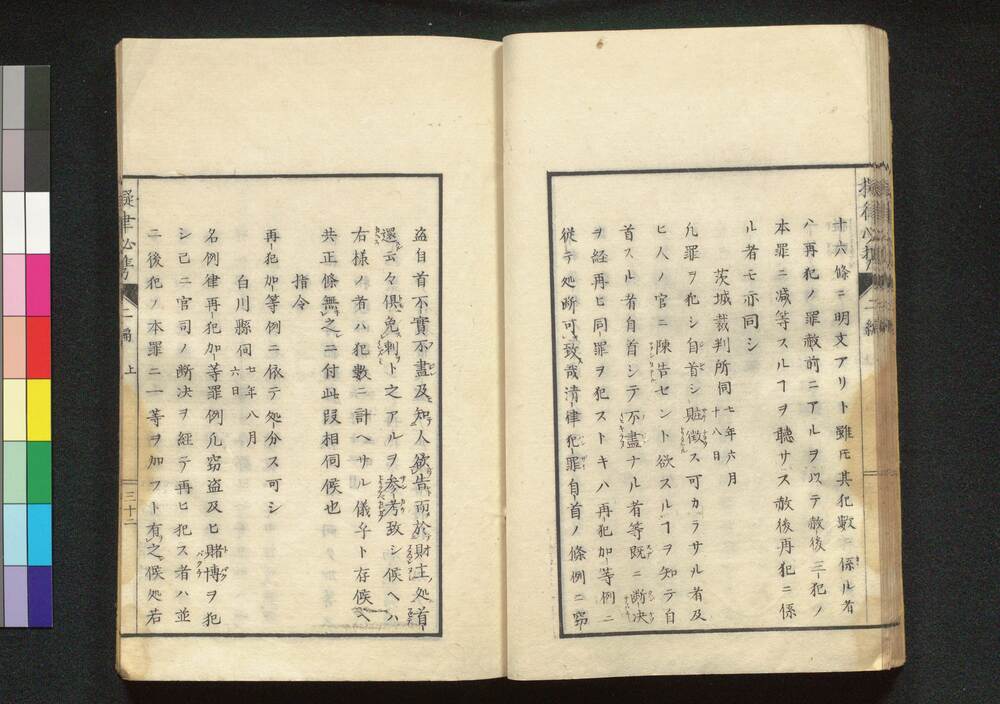 十六條ニ明文アリト雖𪜈其犯數ニ係ル者
ハ再犯ノ罪赦前ニアルヲ以テ赦後三犯ノ
本罪ニ減等スルヿヲ聽サス赦後再犯ニ係
ル者モ亦同シ
茨城裁判所伺七年六月十八日
凡罪ヲ犯シ自首シ賍徴ス可カラサル者及
ヒ人ノ官ニ陳告セント欲スルヿヲ知テ自
首スル者自首シテ不盡ナル者等既ニ断决
ヲ経再ヒ同罪ヲ犯ストキハ再犯加等例ニ
従テ処断可致哉清律犯罪自首ノ條例ニ窃
盗自首不實不盡及知人欲告而於財主処首
還云々倶免刺ト之アルヲ参考致シ候ヘハ
右様ノ者ハ犯數ニ計ヘサル儀乎ト存候ヘ
共正條無之ニ付此段相伺候也
指令
再犯加等例ニ依テ処分ス可シ
白川縣伺七年八月六日
名例律再犯加等罪例凡窃盗及ヒ賭博ヲ犯
シ己ニ官司ノ断决ヲ経テ再ヒ犯ス者ハ並
ニ後犯ノ本罪ニ一等ヲ加フト有之候処若
二編
上
三十二